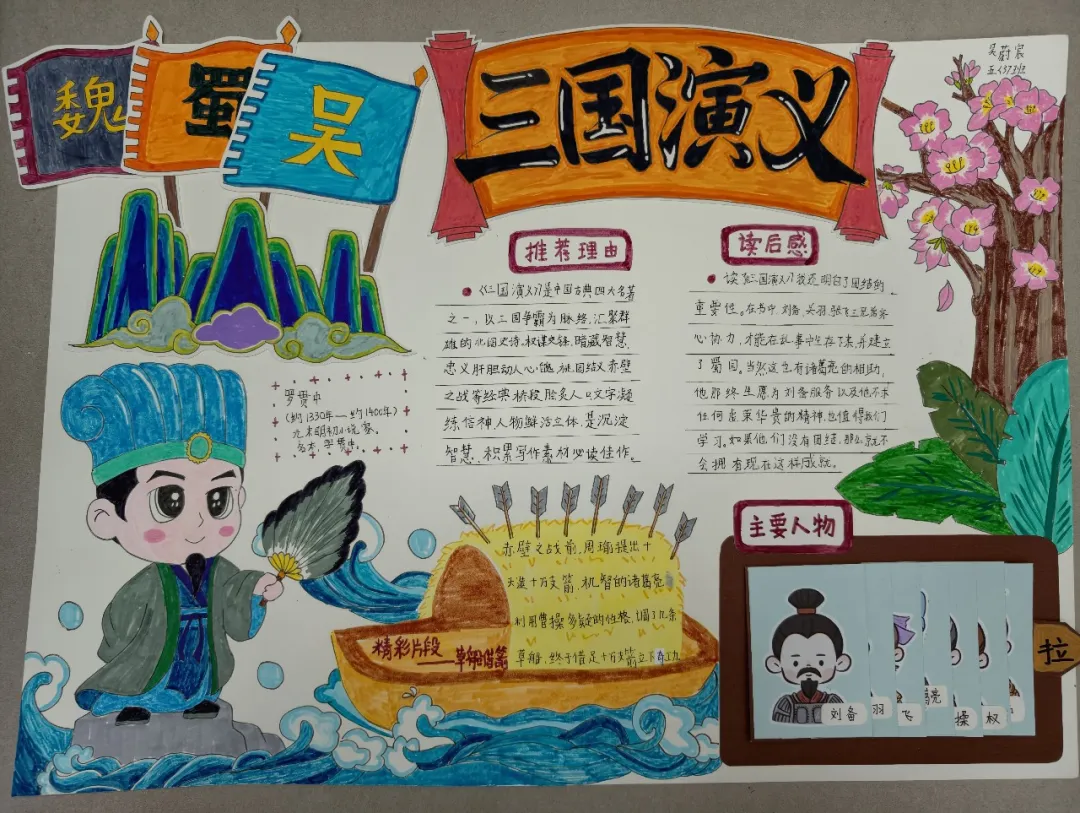 魏
蜀
吴
三国演义
吴蔚宸
五(5)班
推荐理由
《三国演义》是中国古典四大名著
之一，以三国争霸为脉络，汇聚群
雄的壮阔史诗。权谋史转，暗藏智慧，
忠义肝胆动人心魄，桃园结义、赤壁
之战等经典桥段脍炙人口，文字凝
练传神人物鲜活立体，是沉淀
智慧、积累写作素材必读佳作。
读后感
读了《三国演义》，我还明白了团结的
重要性。在书中，刘备、关羽、张飞三兄弟齐
心协力，才能在乱事中生存下来，并建立
了蜀国。当然这也有诸葛亮的相助，
他那终生愿为刘备服务以及他不求
任何富荣华贵的精神，也值得我们
学习。如果他们没有团结，那么就不
会拥有现在这样成就。
罗贯中
(约1330年—约1400年)
元末明初小说家。
名本，罗贯中。
赤壁之战前，周瑜提出十
天造十万支箭，机智的诸葛亮
利用曹操多疑的性格，调了几条
草船，终于借足十万支箭立下
精彩片段
——草船借箭
主要人物
刘备
羽
飞
亮
操
权
拉